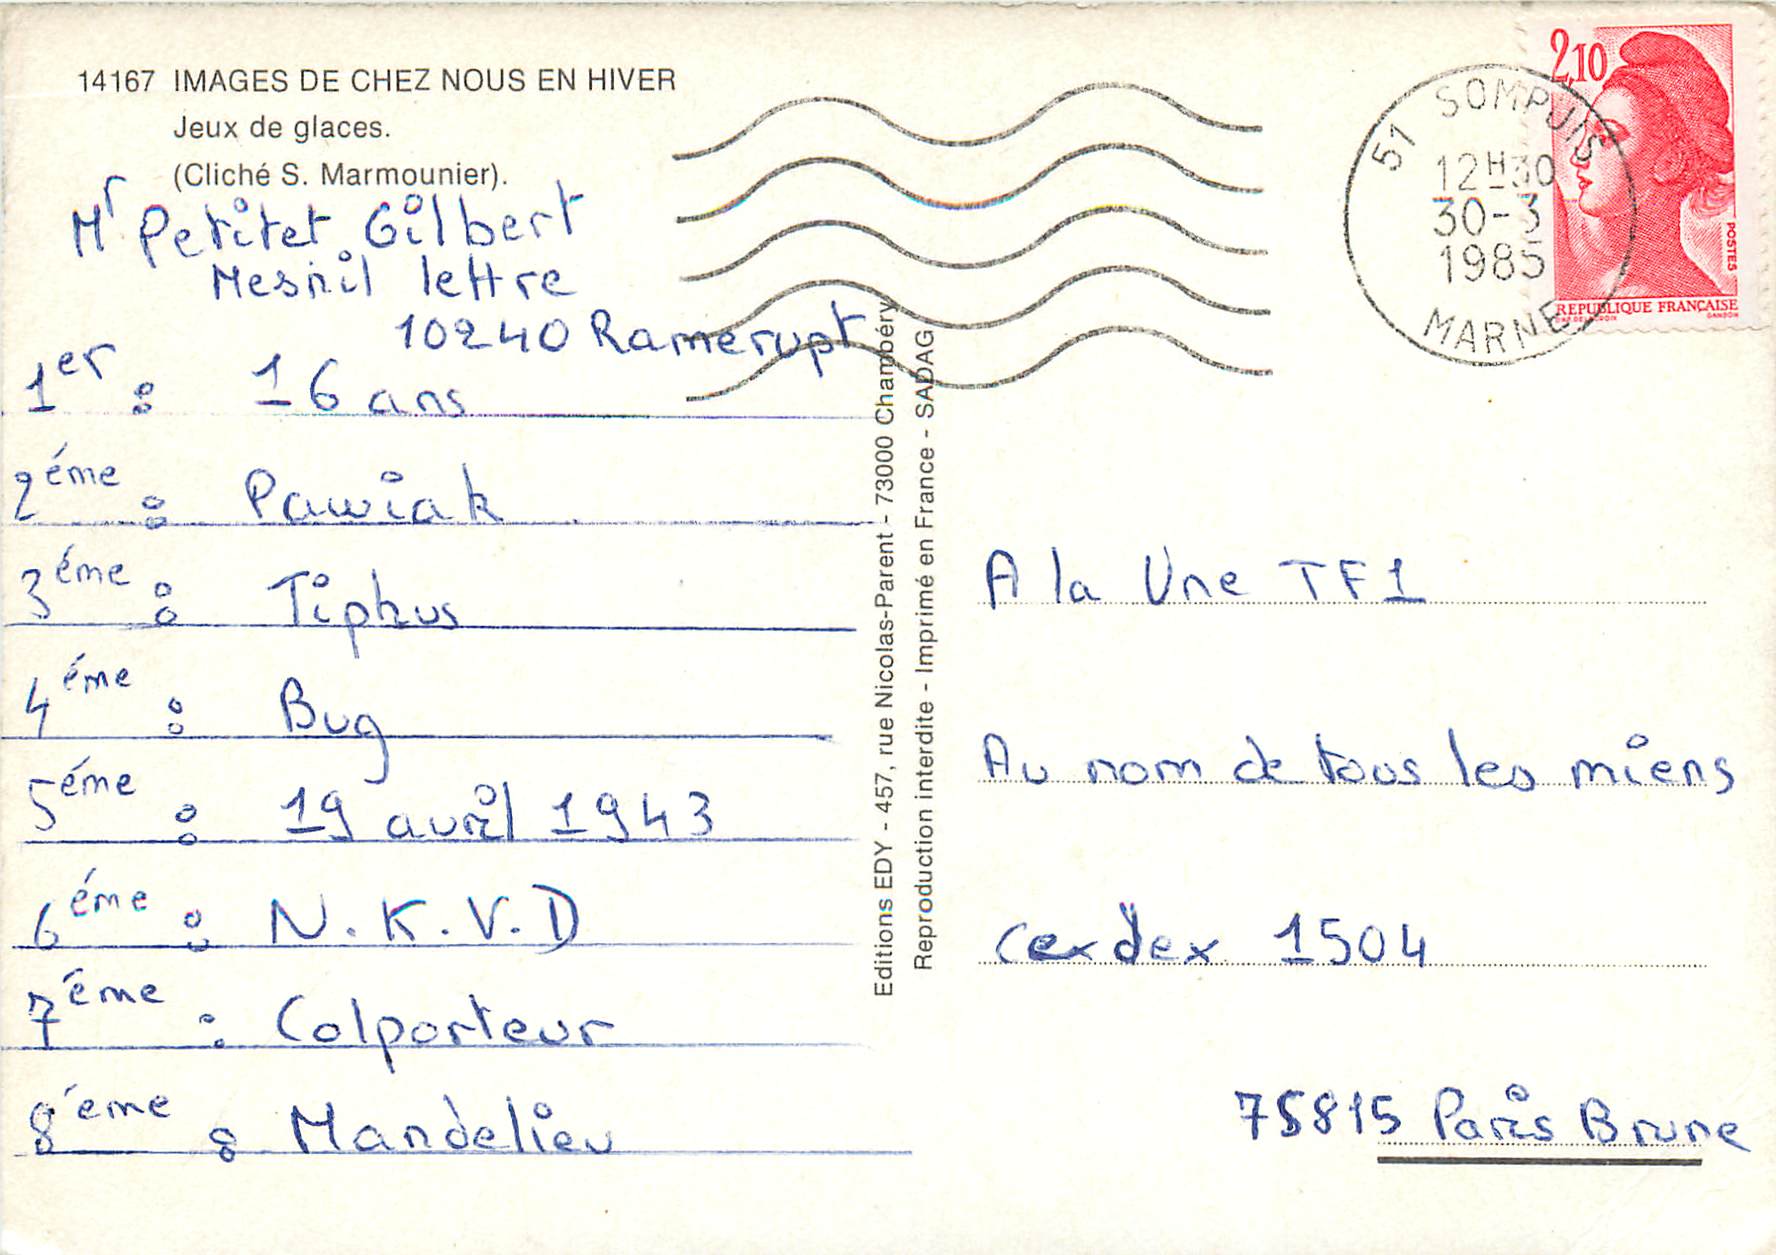 14167 IMAGES DE CHEZ NOUS EN HIVER
Jeux de glaces.
(Cliché S. Marmounier).
Mr Petitet Gilbert
Mesnil lettre
10240 Ramerupt
1er : 16 ans
2éme : Pawiak
3éme : Tiphus
4éme : Bug
5éme : 19 avril 1943
6éme : N.K.V.D
7éme : Colporteur
8éme : Mandelieu
Editions EDY - 457, rue Nicolas-Parent - 73000 Chambéry
Reproduction interdite - Imprimé en France - SADAG
51 SOMPUIS
12H30
30-3
1985
MARNE
2,10
POSTES
REPUBLIQUE FRANÇAISE
GANDON
A la Une TF1
Au nom de tous les miens
Cexdex 1504
75815 Paris Brune